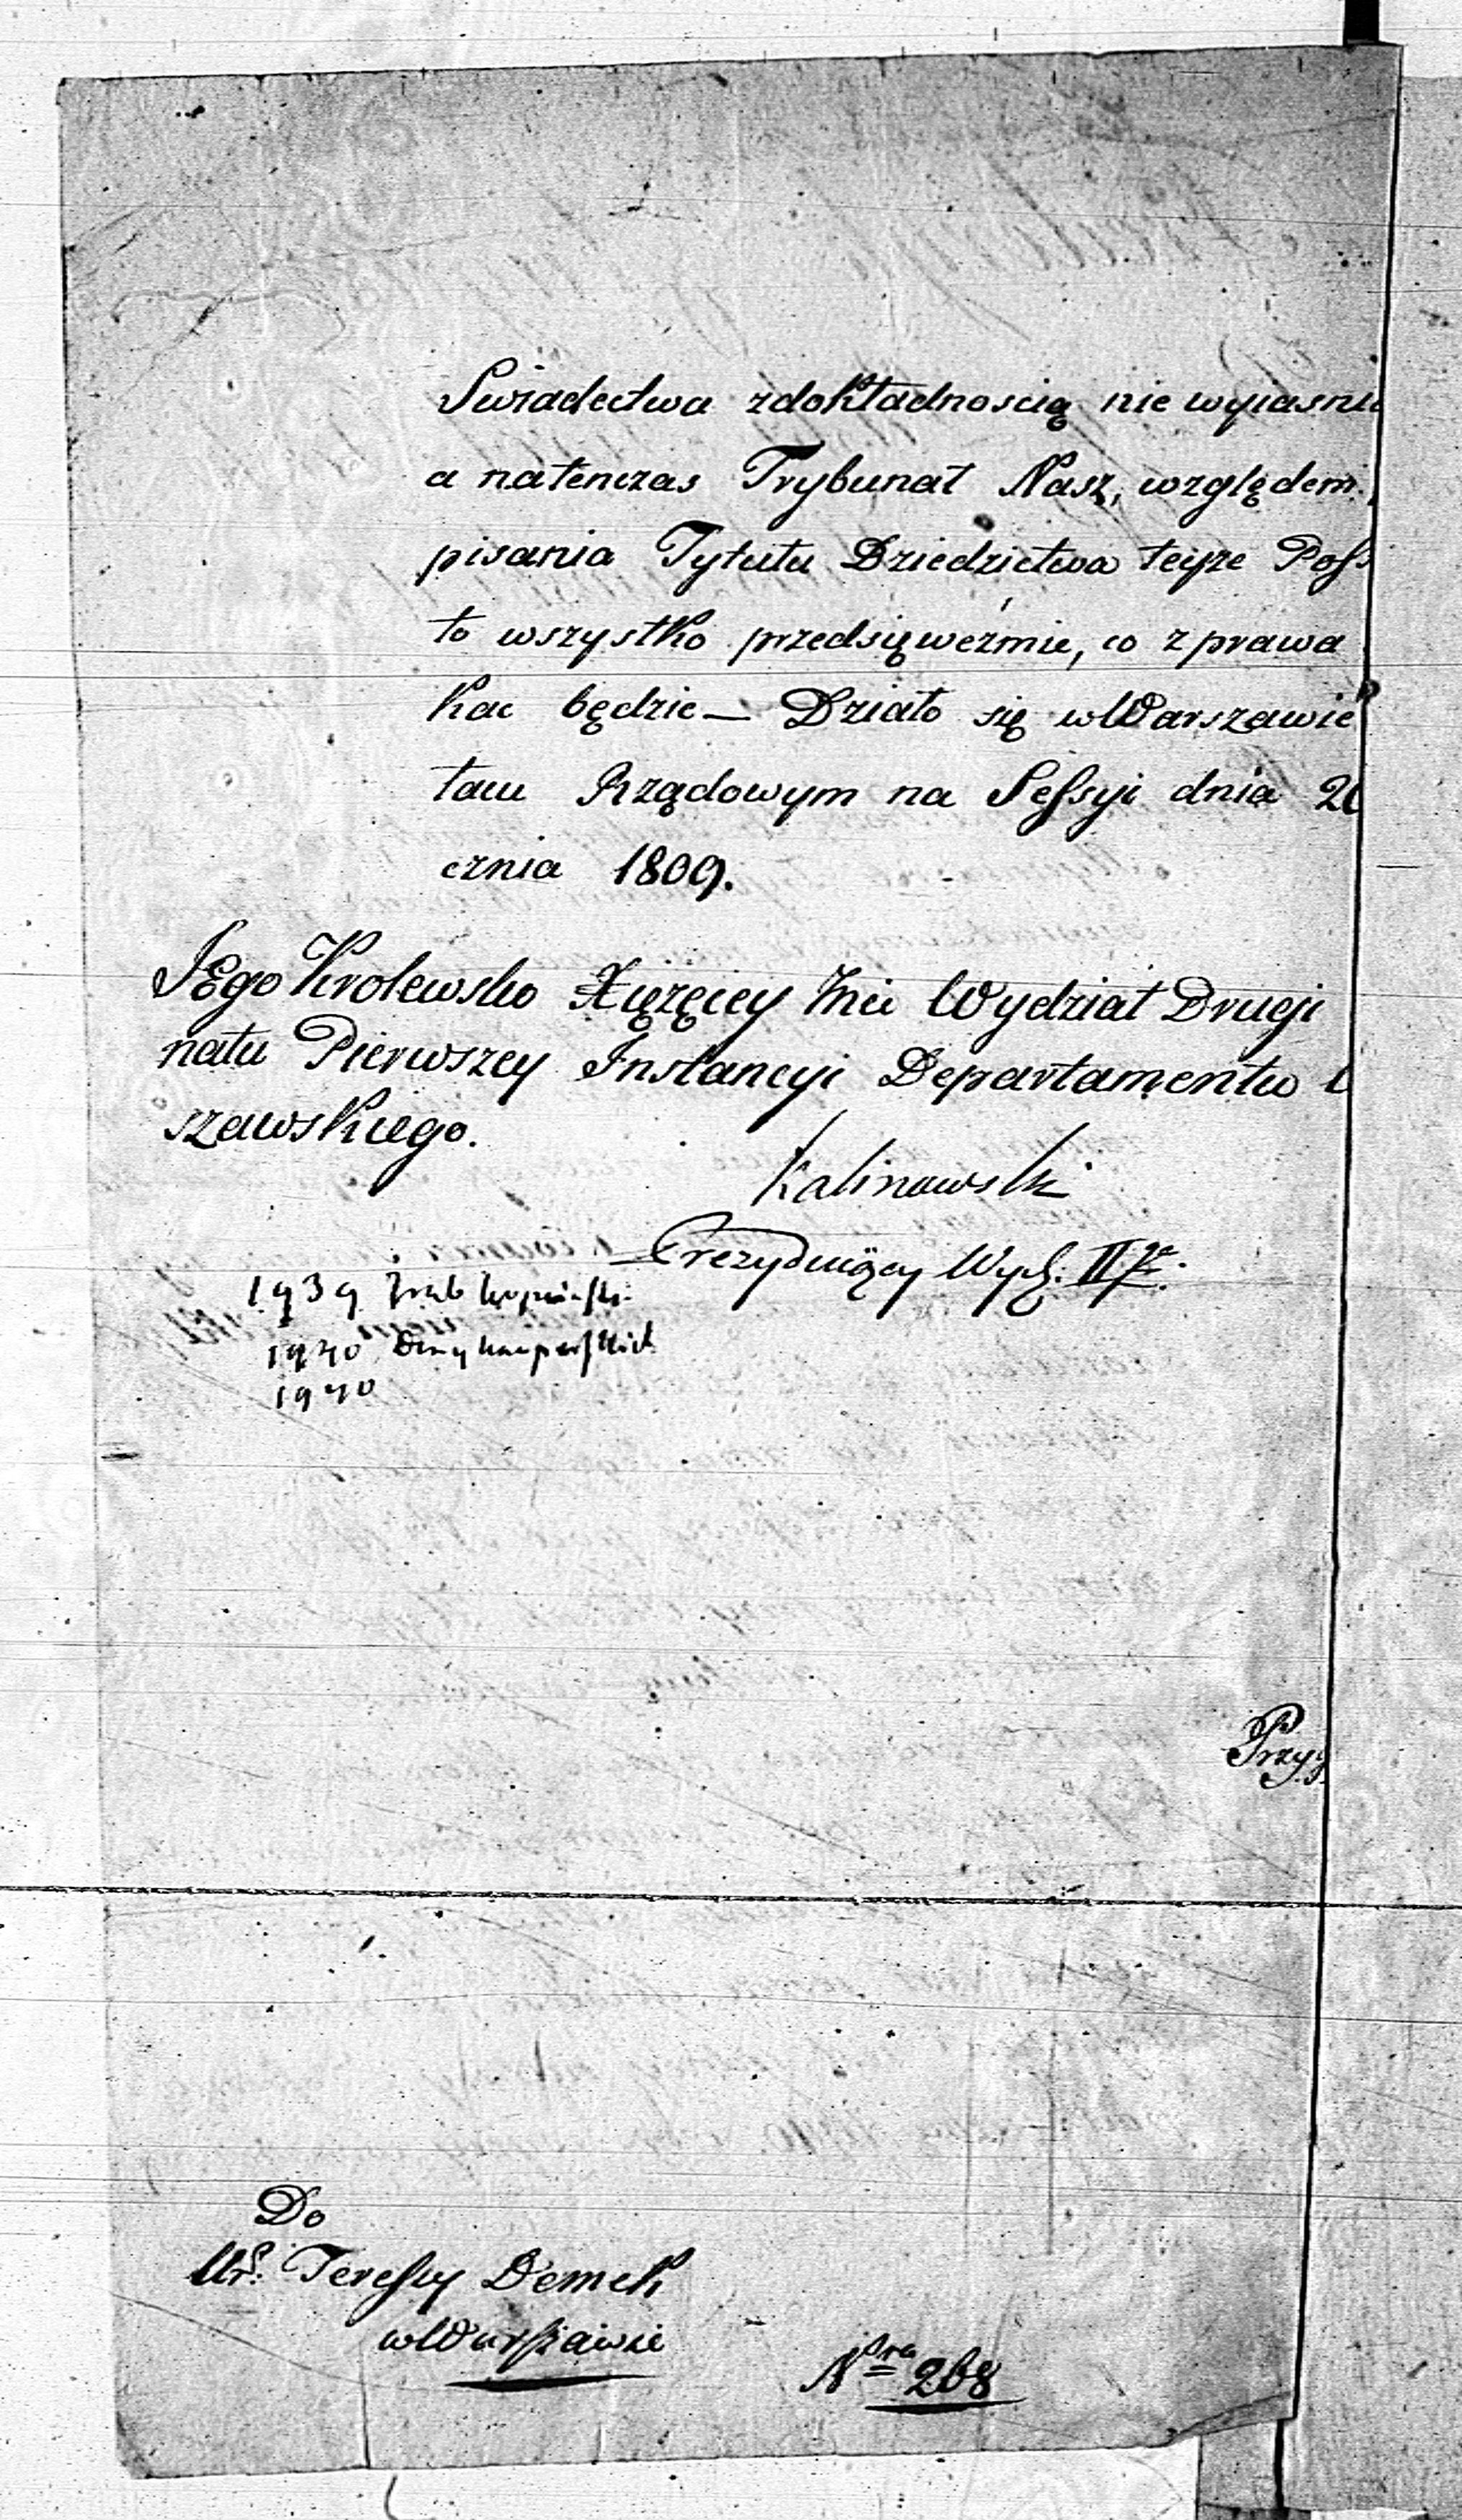 Swiadectwa zdokładnoscią nie wyiasni
a natenczas Trybunał Nasz, względem
pisania Tytułu Dziedzictwa teyże Poss
to wszystko przedsięweźmie, co z prawa
kać będzie — Działo się w Warszawie
łacu Rządowym na Sessyi dnia 20
cznia 1809.
JEgo Krolewsko Xiążęcey Mci Wydział Drugi
nału Pierwszey Instancyi Departamentu
szawskiego.
Kalinowski
Prezyduiący Wydz. II
1939
1940
1940
Przy
Do
Ur. Teressy Demek
w Warszawie
Nro 268